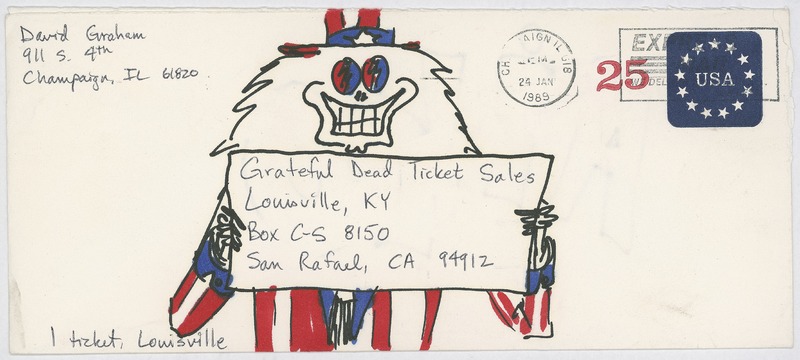 David Graham
911 S. 4th
Champaign, IL 61820
AIGN IL 618
24 JAN
1989
25
USA
Grateful Dead Ticket Sales
Louisville, KY
Box C-S 8150
San Rafael, CA 94912
1 ticket, Louisville